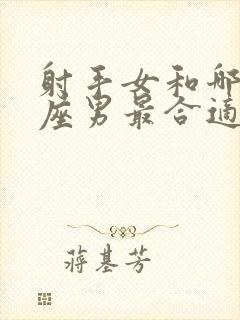 射手女和哪
座男最合适
蒋基芳